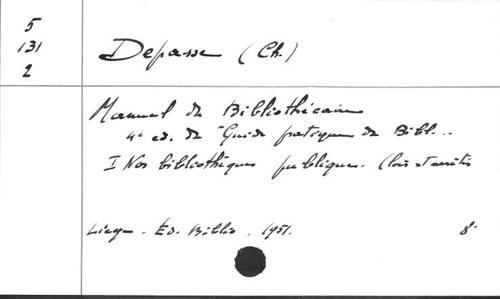 5
131
2
Depasse (Ch.)
Manuel du Bibliothécaire
4e ed. du "Guide pratique du Bibl...
I Nos bibliothèques publiques. (lois et arrêtés
Liège. Ed. Biblio. 1951. 8°